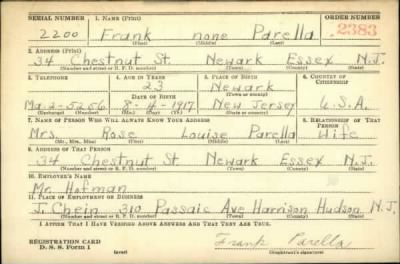 SERIAL NUMBER 1. NAME (Print) ORDER NUMBER
2200 Frank none Parella 2383
(First) (Middle) (Last)
2. ADDRESS (Print)
34 Chestnut St. Newark Essex N.J.
(Number and street or R. F. D. number) (Town) (County) (State)
3. TELEPHONE 4. AGE IN YEARS 5. PLACE OF BIRTH 6. COUNTRY OF CITIZENSHIP
23 Newark
DATE OF BIRTH (Town or county)
Ma. 2-5256 8-4-1917 New Jersey U.S.A.
(Exchange) (Number) (Mo.) (Day) (Yr.) (State or country)
7. NAME OF PERSON WHO WILL ALWAYS KNOW YOUR ADDRESS 8. RELATIONSHIP OF THAT PERSON
Mrs. Rose Louise Parella Wife
(Mr., Mrs., Miss) (First) (Middle) (Last)
9. ADDRESS OF THAT PERSON
34 Chestnut St. Newark Essex N.J.
(Number and street or R. F. D. number) (Town) (County) (State)
10. EMPLOYER'S NAME
Mr. Hofman
11. PLACE OF EMPLOYMENT OR BUSINESS
J. Chein 310 Passaic Ave Harrison Hudson N.J.
(Number and street or R. F. D. number) (Town) (County) (State)
I AFFIRM THAT I HAVE VERIFIED ABOVE ANSWERS AND THAT THEY ARE TRUE.
REGISTRATION CARD
D. S. S. Form 1 (over) Frank Parella
(Registrant's signature)